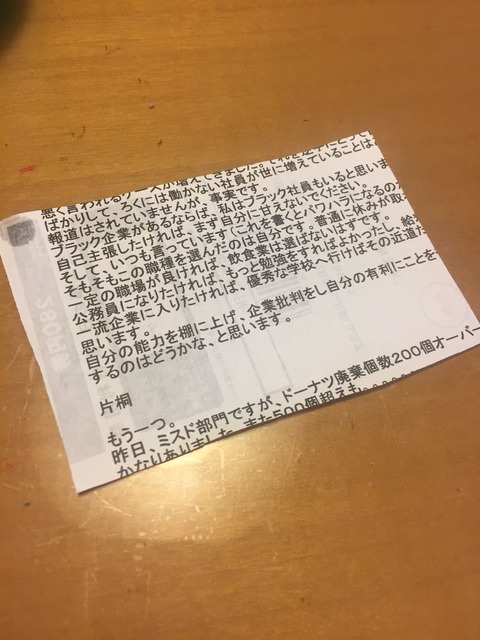 悪く言われる
ばかりして、ろくには働かない社員が世に増えていることは
報道はされていませんが、事実です。
ブラック企業があるならば、私はブラック社員もいると思いま
自己主張したければ、まず自分に甘えないでください。
そして、いつも言っています(これを書くとパワハラになるのか
そもそもこの職種を選んだのは自分です。普通に休みが取れ
一定の職場が良ければ、飲食業は選ばないはずです。
公務員になりたければ、もっと勉強をすればよかったし、給
一流企業に入りたければ、優秀な学校へ行けばその近道だ
思います。
自分の能力を棚に上げ、企業批判をし自分の有利にことを
するのはどうかな、と思います。
片桐
もう一つ。
昨日、ミスド部門ですが、ドーナツ廃棄個数200個オーバー
かなりありました。また500個超えも
280円